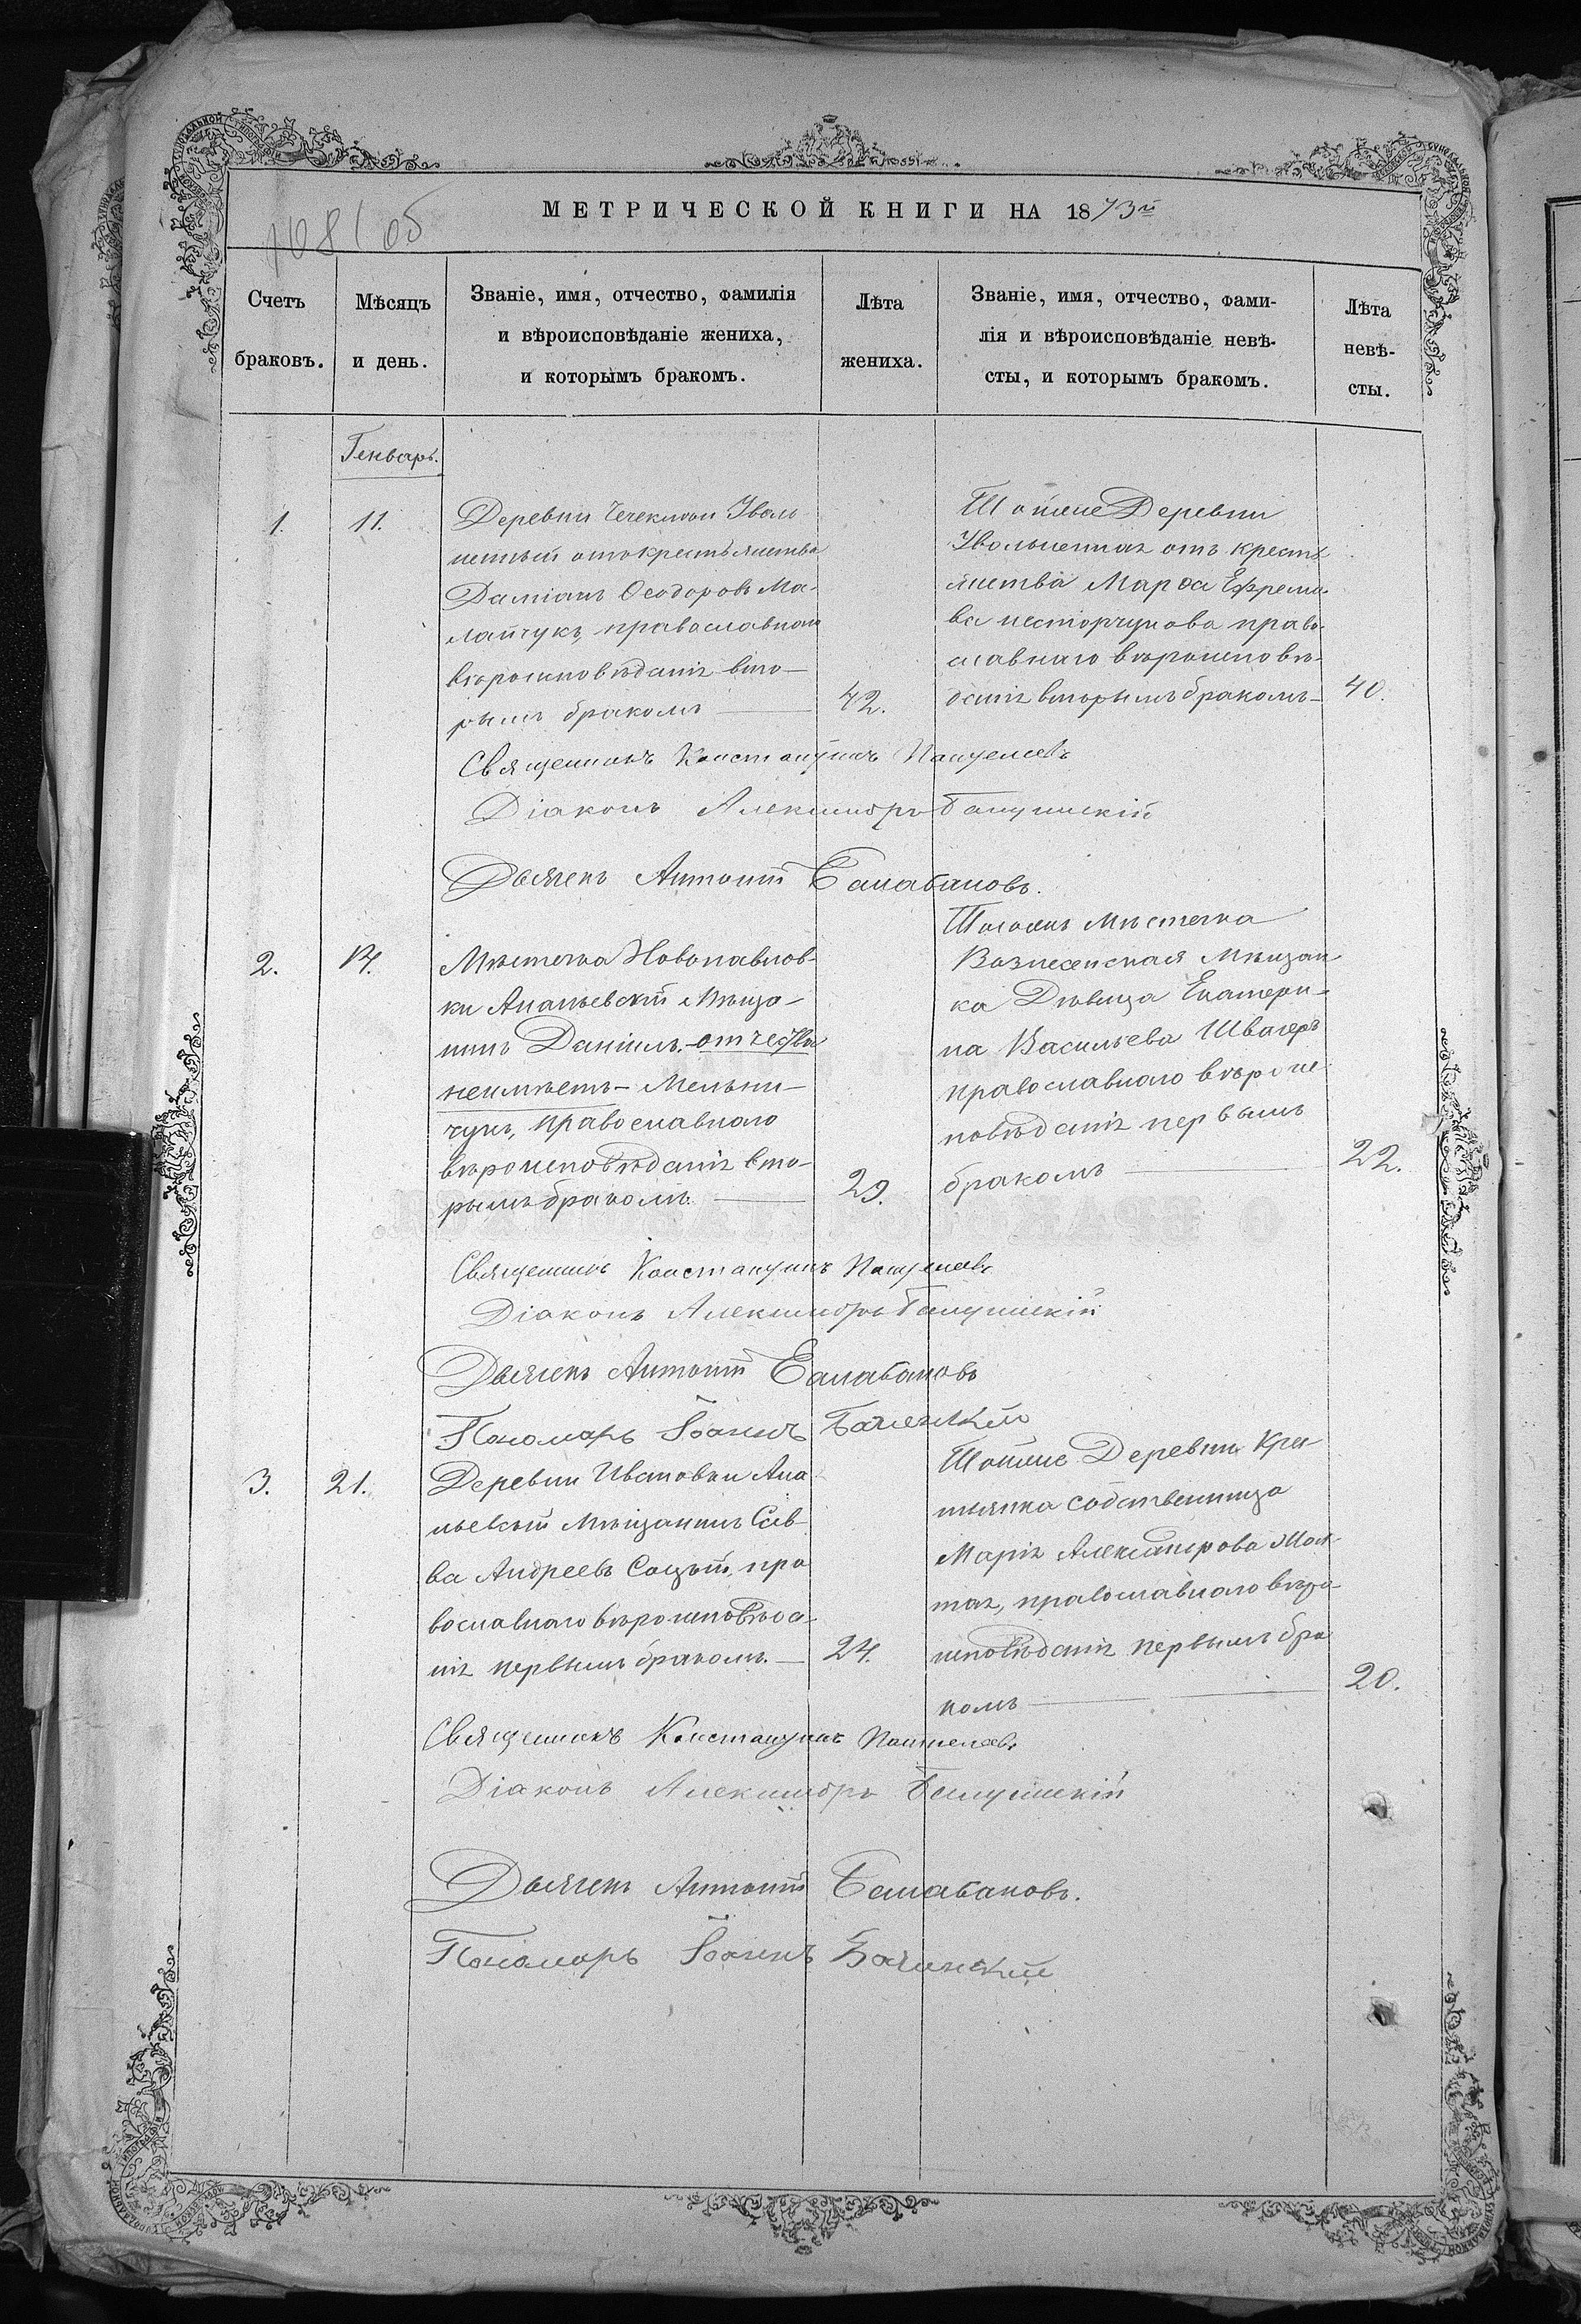 МЕТРИЧЕСКОЙ КНИГИ НА 1873й
Счетъ
браковъ.
Мѣсяцъ
и день.
Званіе, имя, отчество, фамилія
и вѣроисповѣданіе жениха,
и которымъ бракомъ.
Лѣта
жениха.
Званіе, имя, отчество, фами-
лія и вѣроисповѣданіе невѣ-
сты, и которымъ бракомъ.
Лѣта
невѣ-
сты.
Генварь.
1
11.
Деревни Уволь
ненный отъ крестьянства
Даміанъ Ѳеодоровъ Ма-
лайчукъ, православнаго
вѣроисповѣданія вто-
рымъ бракомъ
42.
Тойже Деревни
Уволенная отъ кресть
янства Марѳа Ефремо-
ва Несторчукова право-
славнаго вѣроисповѣ-
данія вторымъ бракомъ-
40.
Священникъ Константинъ
Діаконъ Александръ
Дьячекъ Антоній Балабановъ.
2.
14.
Мѣстечка Новопавлов-
ки Ананьевскій Мѣща-
нинъ Даніилъ - отчества
неимѣетъ - Мельни-
чукъ, православнаго
вѣроисповѣданія вто-
рымъ бракомъ.
29.
Тогожъ Мѣстечка
Вознесенская Мѣщан
ка Дѣвица Екатери-
на Васильева Швагеръ
православнаго вѣроис
повѣданія первымъ
бракомъ
22.
Священникъ Константинъ
Діаконъ Александръ
Дьячекъ Антоній Балабановъ
Пономарь Іоаннъ Бачинскій
3.
21.
Деревни Ивановки Ана
ньевскій Мѣщанинъ Сав-
ва Андреевъ Соцкій, пра
вославнаго вѣроисповѣда-
нія первымъ бракомъ.
24.
Тойже Деревни Кре-
тьянка собственница
Марія Александрова
православнаго вѣро-
исповѣданія первымъ бра
комъ
20.
Священникъ Константинъ
Діаконъ Александръ
Дьячекъ Антоній Балабановъ.
Пономарь Іоаннъ Бачинскій